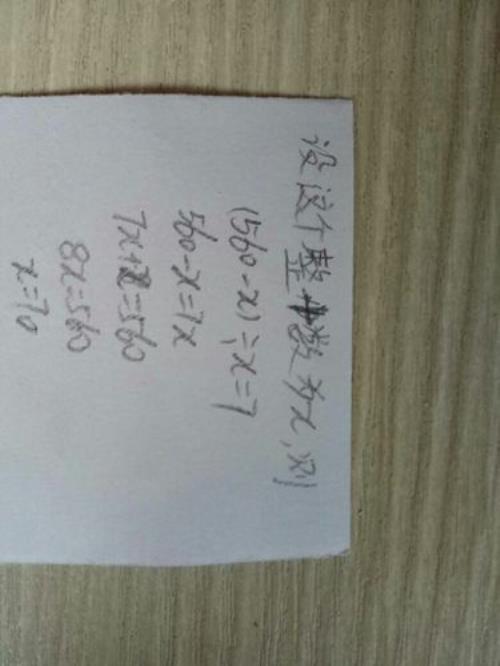 设这个整数为x,则
(560-x)÷x=7
560-x=7x
7x+x=560
8x=560
x=70